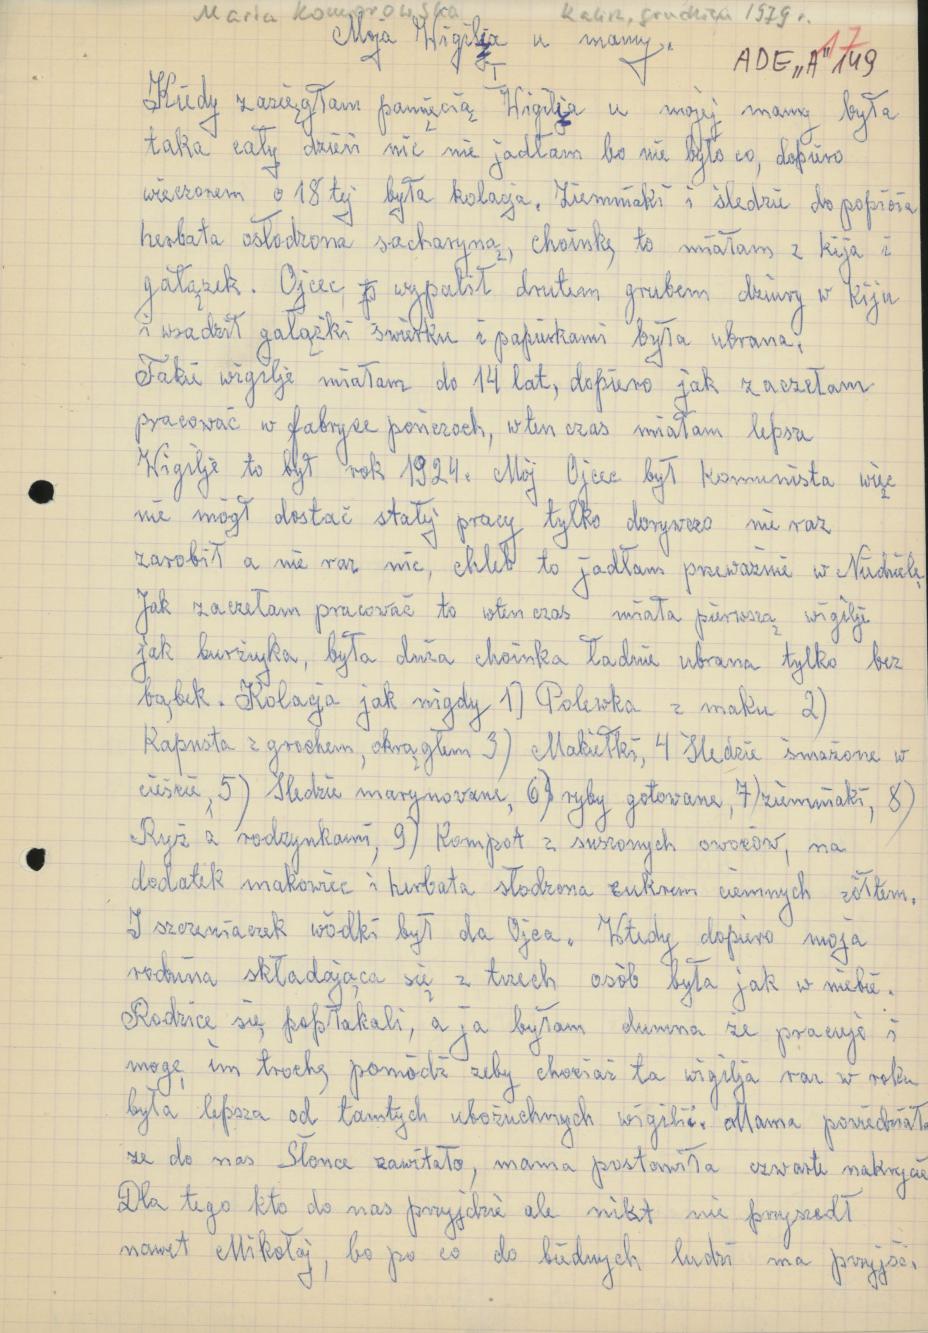 Maria Komorowska Kalisz, grudzień 1979 r.
Moja Wigilia u mamy.
17
ADE „A" 149
I
Kiedy zasięgłam pamięcią Wigilja u mojej mamy była
taka cały dzień nic nie jadłam bo nie było co, dopiero
wieczorem o 18 tej była kolacja. Ziemniaki i śledzie do popicia
herbata osłodzona sacharyną, choinkę to miałam z kija i
gałązek. Ojciec wypalił drutem grubem dziury w kiju
i wsadził gałązki świerku i papierkami była ubrana.
Takie wigilje miałam do 14 lat, dopiero jak zaczełam
pracować w fabryce pończoch, wten czas miałam lepsza
Wigilje to był rok 1924. Mój Ojciec był Komunista więc
nie mógł dostać stałej pracy tylko dorywczo nie raz
zarobił a nie raz nic, chleb to jadłam przeważnie w Niedzielę.
Jak zaczełam pracować to wten czas miała pierwszą wigilje
jak burżujka, była duża choinka ładnie ubrana tylko bez
bąbek. Kolacja jak nigdy 1) Polewka z maku 2)
Kapusta z grochem, okrągłem 3) Makiełki, 4 Śledzie smażone w
cieście, 5) Śledzie marynowane, 6) ryby gotowane, 7) ziemniaki, 8)
Ryż z rodzynkami, 9) Kompot z suszonych owoców, na
dodatek makowiec i herbata słodzona cukrem ciemnych żółtem.
I szczeniaczek wódki był da Ojca. Wtedy dopiero moja
rodzina składająca się z trzech osób była jak w niebie.
Rodzice się popłakali, a ja byłam dumna że pracuje i
mogę im trochę pomódz zeby chociaż ta wigilja raz w roku
była lepsza od tamtych ubożuchnych wigilii. Mama powiedziała
ze do nas Słonce zawitało, mama postawiła czwarte nakrycie
Dla tego kto do nas przyjdzie ale nikt nie przyszedł
nawet Mikołaj, bo po co do biednych ludzi ma przyjść.